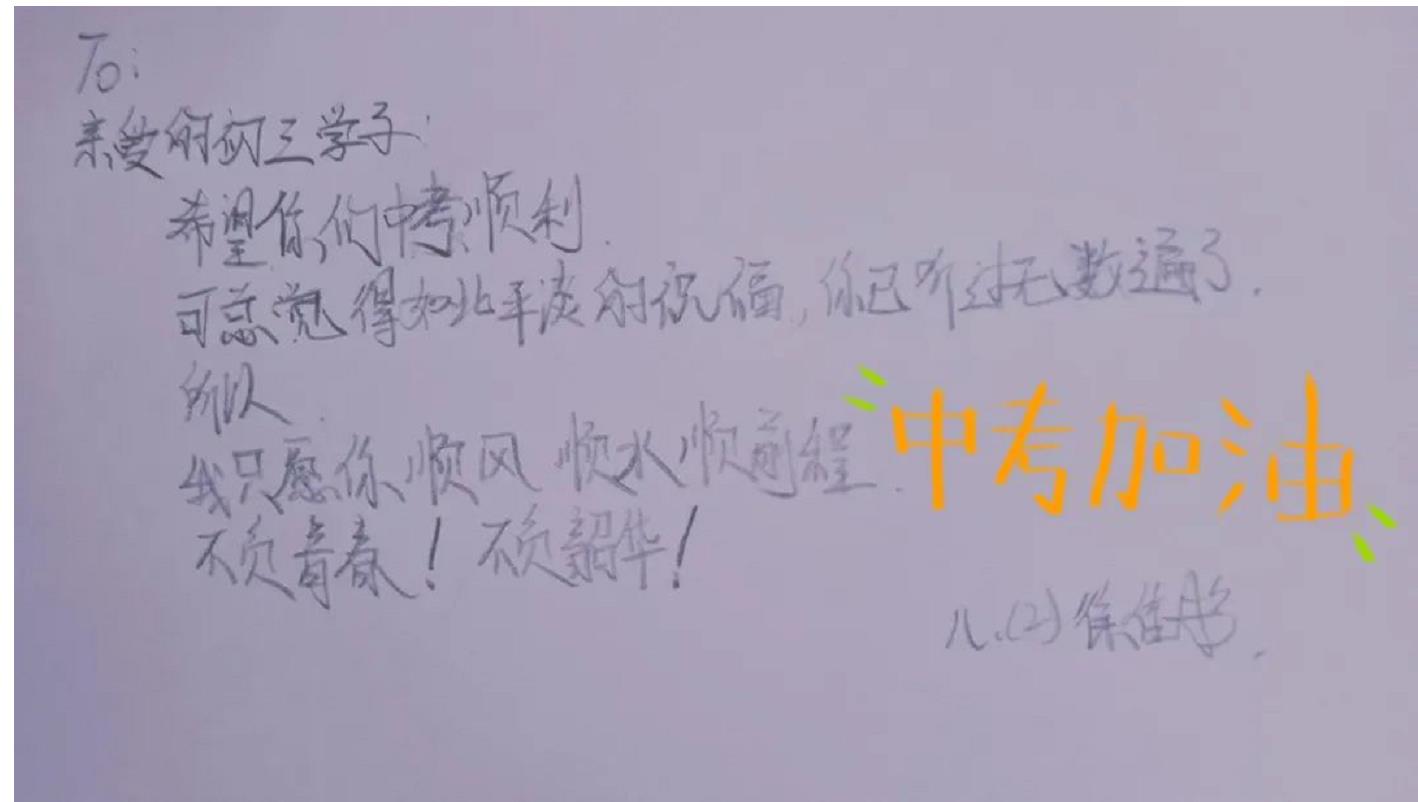 To:
亲爱的初三学子:
希望你们中考顺利.
可总觉得如此平淡的祝福,你已听过无数遍了.
所以.
我只愿你顺风 顺水顺前程.
中考加油
不负青春!不负韶华!
八.(2)徐佳彤.